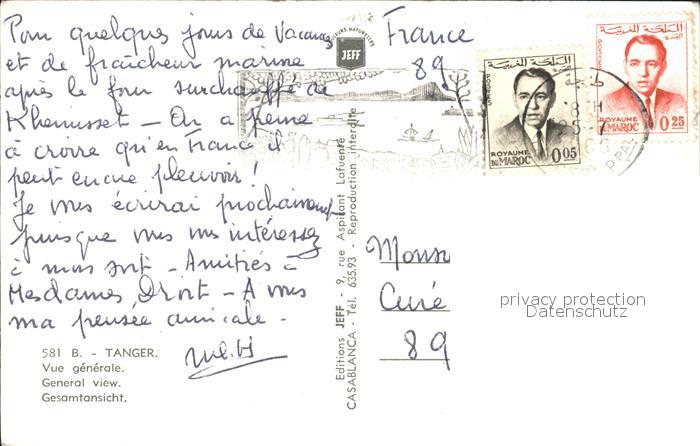 Pour quelques jours de vacances
et de fraîcheur marine
après le four surchauffé de
Khemisset - On a peine
à croire qu'en France il
peut encore pleuvoir!
Je vous écrirai prochainement
puisque vous vous intéressez
à mon sort - Amitiés à
Mesdames Droit - A vous
ma pensée amicale -
581 B. - TANGER.
Vue générale.
General view.
Gesamtansicht.
COULEURS NATURELLES
JEFF
Editions JEFF - 9, rue Aspirant Lafuente
CASABLANCA - Tél. 635.93 - Reproduction interdite
France
89
المملكة المغربية
ROYAUME DU MAROC 0,05
المملكة المغربية
ROYAUME DU MAROC 0,25
طنجة
Monsi
Curé
89
privacy protection
Datenschutz